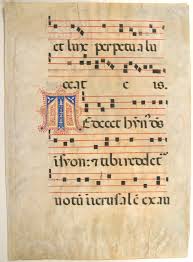 et lux perpetua lu
ceat e is.
Te decet hȳn⁹ ds̄
ī syon: & tibi reddet
uotū ī ierusalē exau